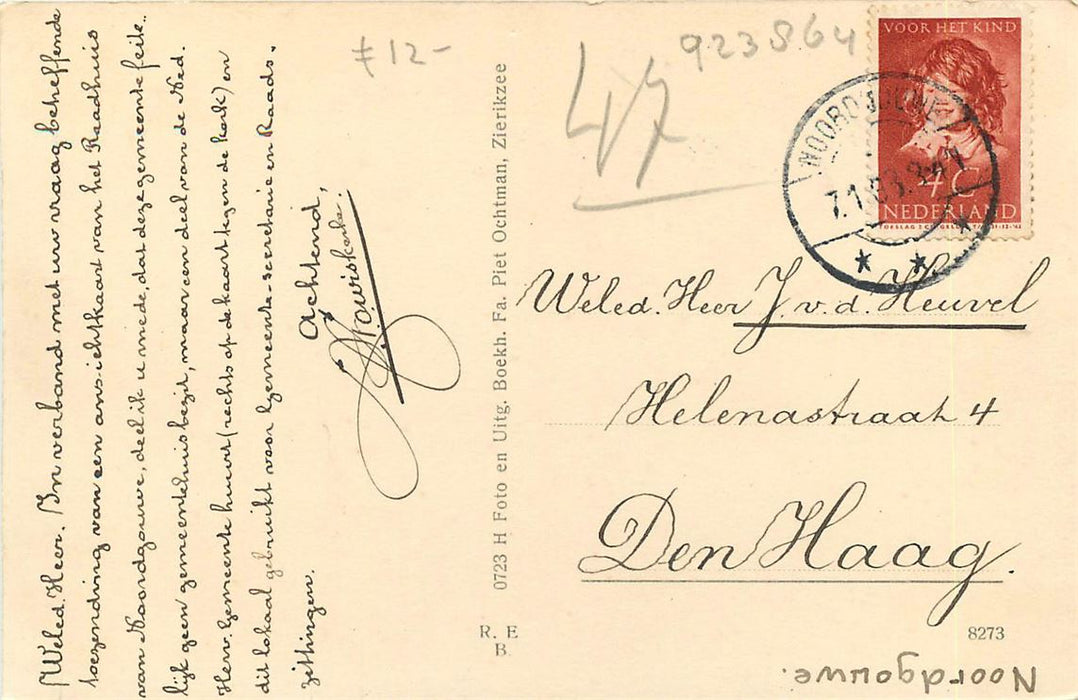 Weled. Heer. In verband met uw vraag betreffende
toezending van een ansichtkaart van het Raadhuis
van Noordgouwe, deel ik u mede, dat deze gemeente feite-
lijk geen gemeentehuis bezit, maar een deel van de Ned.
Herv. Gemeente huurt (rechts op de kaart tegen de kerk) en
dit lokaal gebruikt voor gemeente-secretarie en Raads-
zittingen.
Achtend,
0723 H Foto en Uitg. Boekh. Fa. Piet Ochtman, Zierikzee
R. E
B.
f 12-
47
923864
VOOR HET KIND
4 C
NEDERLAND
NOORDGOUWE
Weled. Heer J. v. d. Heuvel
Helenastraat 4
Den Haag.
8273
Noordgouwe.